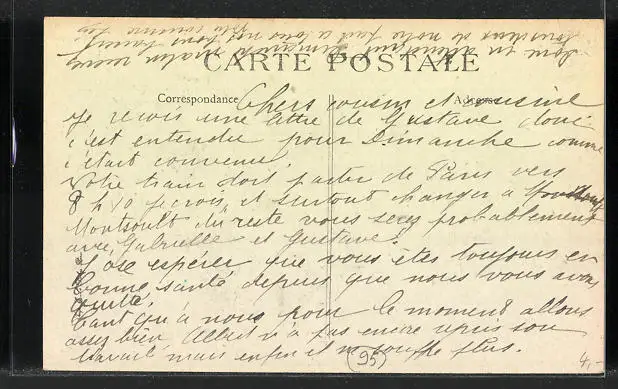 CARTE POSTALE
Correspondance
Adresse
Chers cousin et cousine
Je reçois une lettre de Gustave donc
c'est entendu pour Dimanche comme
c'était convenu.
Votre train doit partir de Paris vers
8 h 10 je crois et surtout changer a
Montsoult du reste vous serez probablement
avec Gabrielle et Gustave.
J'ose espérer que vous êtes toujours en
bonne santé depuis que nous vous avons
quitté.
Tant qu'à nous pour le moment allons
assez bien Albert n'a pas encore repris son
travail mais enfin il ne souffre plus.
Donc en attendant Dimanche matin recevez
tous deux de notre part a tous nos
(95)
4,-